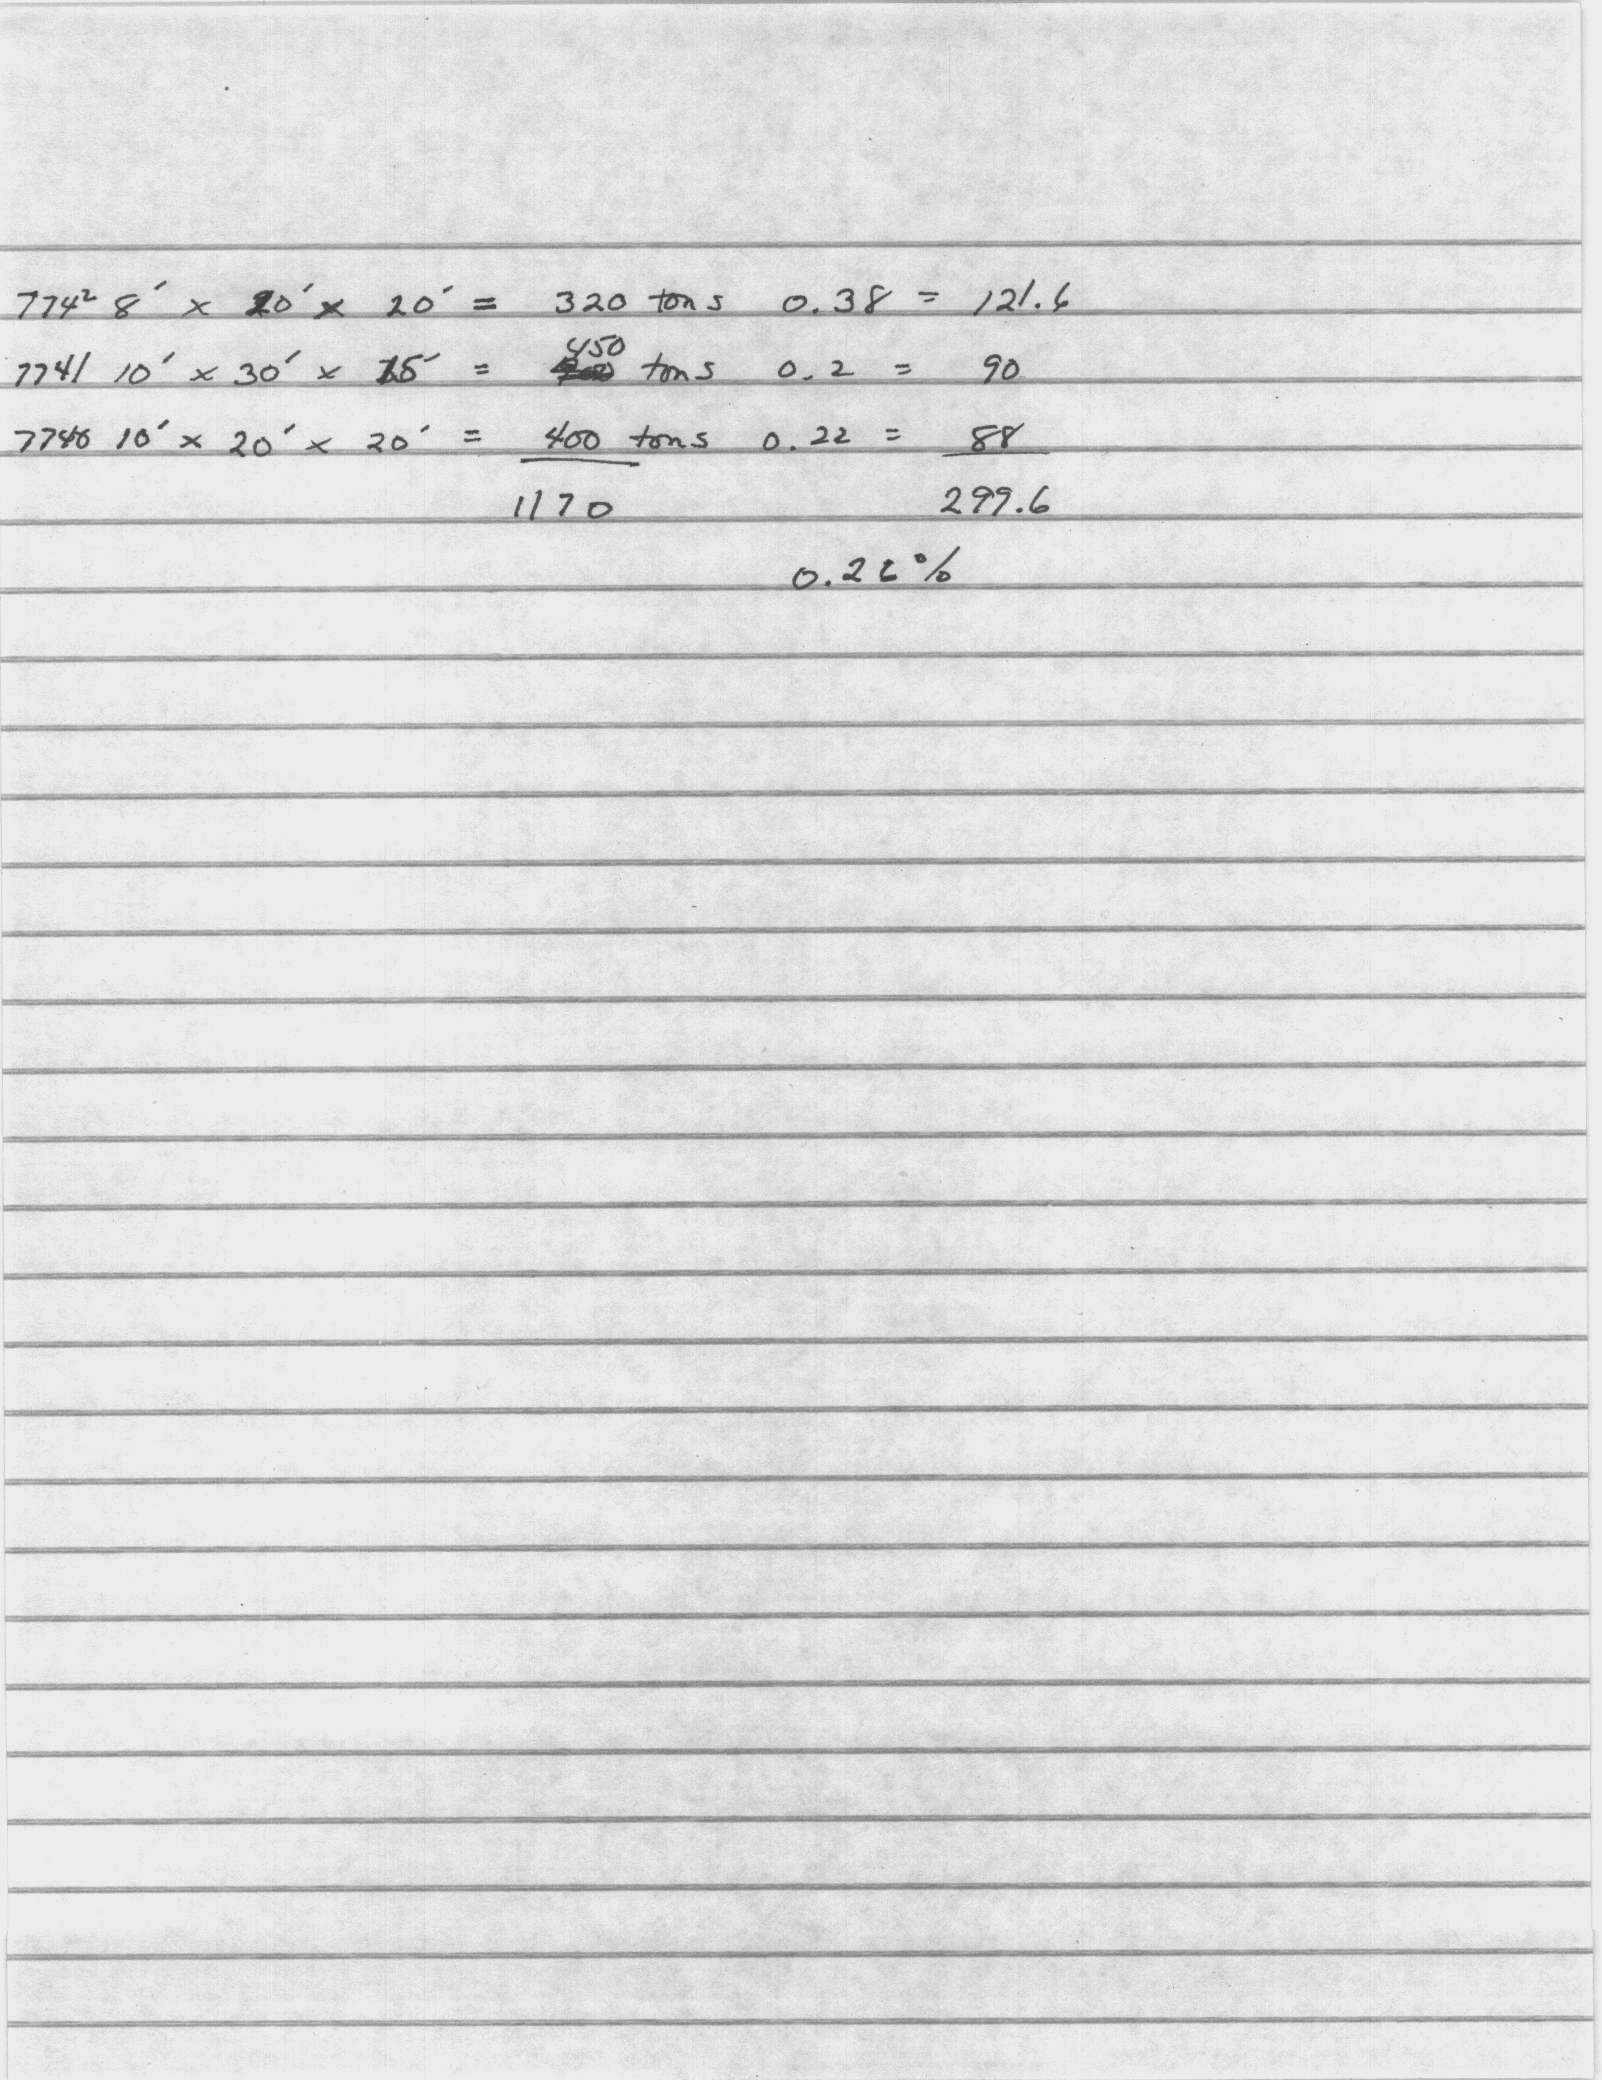 7742 8' x 20' x 20' = 320 tons 0.38 = 121.6
7741 10' x 30' x 15' = 450 tons 0.2 = 90
7740 10' x 20' x 20' = 400 tons 0.22 = 88
1170 299.6
0.26%